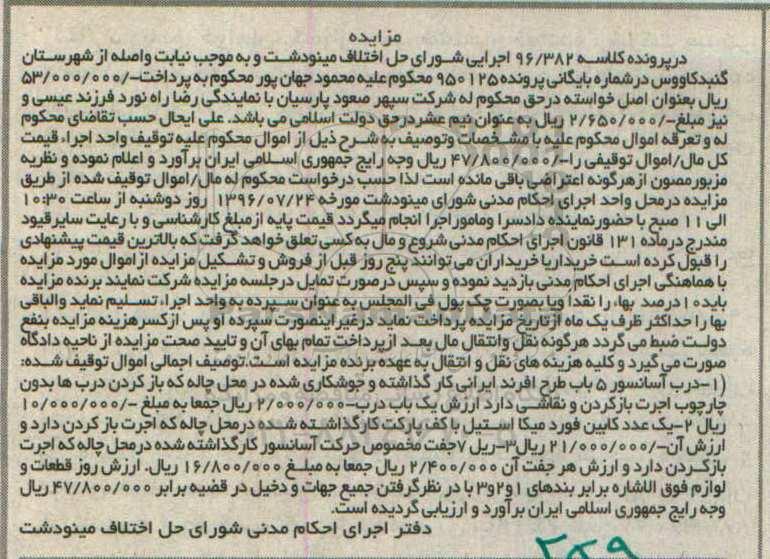 مزایده
درپرونده کلاسه ۹۶/۳۸۲ اجرایی شورای حل اختلاف مینودشت و به موجب نیابت واصله از شهرستان
گنبدکاووس درشماره بایگانی پرونده ۹۵۰۱۲۵ محکوم علیه محمود جهان پور محکوم به پرداخت-/۵۳/۰۰۰/۰۰۰
ریال بعنوان اصل خواسته درحق محکوم له شرکت سپهر صعود پارسیان با نمایندگی رضا راه نورد فرزند عیسی و
نیز مبلغ-/۲/۶۵۰/۰۰۰ ریال به عنوان نیم عشردرحق دولت اسلامی می باشد. علی ایحال حسب تقاضای محکوم
له و تعرفه اموال محکوم علیه با مشخصات وتوصیف به شرح ذیل از اموال محکوم علیه توقیف واحد اجراء قیمت
کل مال/اموال توقیفی را-/۴۷/۸۰۰/۰۰۰ ریال وجه رایج جمهوری اسلامی ایران برآورد و اعلام نموده و نظریه
مزبورمصون ازهرگونه اعتراضی باقی مانده است لذا حسب درخواست محکوم له مال/اموال توقیف شده از طریق
مزایده درمحل واحد اجرای احکام مدنی شورای مینودشت مورخه ۱۳۹۶/۰۷/۲۴ روز دوشنبه از ساعت ۱۰:۳۰
الی ۱۱ صبح با حضورنماینده دادسرا ومامور اجرا انجام میگردد قیمت پایه ازمبلغ کارشناسی و با رعایت سایر قیود
مندرج درماده ۱۳۱ قانون اجرای احکام مدنی شروع و مال به کسی تعلق خواهد گرفت که بالاترین قیمت پیشنهادی
را قبول کرده است خریداریا خریداران می توانند پنج روز قبل از فروش و تشکیل مزایده ازاموال مورد مزایده
با هماهنگی اجرای احکام مدنی بازدید نموده و سپس درصورت تمایل درجلسه مزایده شرکت نمایند برنده مزایده
باید ۱۰ درصد بهاء را نقدا ویا بصورت چک پول فی المجلس به عنوان سپرده به واحد اجراء تسلیم نماید والباقی
بها را حداکثر ظرف یک ماه ازتاریخ مزایده پرداخت نماید درغیر اینصورت سپرده او پس ازکسرهزینه مزایده بنفع
دولت ضبط می گردد هرگونه نقل وانتقال مال بعد ازپرداخت تمام بهای آن و تایید صحت مزایده از ناحیه دادگاه
صورت می گیرد و کلیه هزینه های نقل و انتقال به عهده برنده مزایده است.توصیف اجمالی اموال توقیف شده:
(۱-درب آسانسور ۵ باب طرح افرند ایرانی کار گذاشته و جوشکاری شده در محل چاله که باز کردن درب ها بدون
چارچوب اجرت بازکردن و نقاشی دارد ارزش یک باب درب-/۲/۰۰۰/۰۰۰ ریال جمعا به مبلغ -/۱۰/۰۰۰/۰۰۰
ریال ۲-یک عدد کابین فورد میکا استیل با کف پارکت کارگذاشته شده درمحل چاله که اجرت باز کردن دارد و
ارزش آن-/۲۱/۰۰۰/۰۰۰ ریال۳-ریل ۷جفت مخصوص حرکت آسانسور کارگذاشته شده درمحل چاله که اجرت
بازکردن دارد و ارزش هر جفت آن ۲/۴۰۰/۰۰۰ ریال جمعا به مبلغ ۱۶/۸۰۰/۰۰۰ ریال. ارزش روز قطعات و
لوازم فوق الاشاره برابر بندهای ۱و۲و۳ با در نظرگرفتن جمیع جهات و دخیل در قضیه برابر ۴۷/۸۰۰/۰۰۰ ریال
وجه رایج جمهوری اسلامی ایران برآورد و ارزیابی گردیده است.
دفتر اجرای احکام مدنی شورای حل اختلاف مینودشت